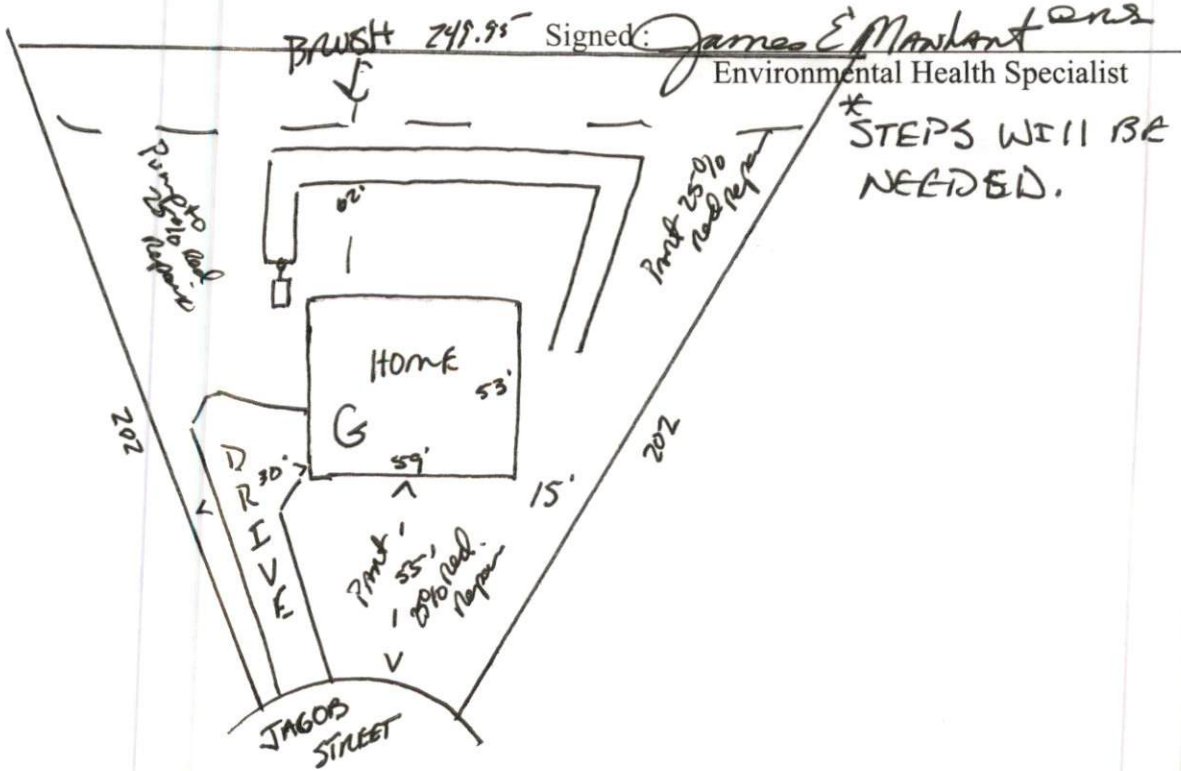 BRUSH 249.95 Signed: James E Manhant
Environmental Health Specialist
* STEPS WILL BE
NEEDED.
Pump to
25% Red
Repair
62'
Pmt 25%
Red Repair
HOME
53'
G
59'
202
202
DRIVE
30'
15'
Pmt
55'
25% Red.
Repair
JACOB
STREET